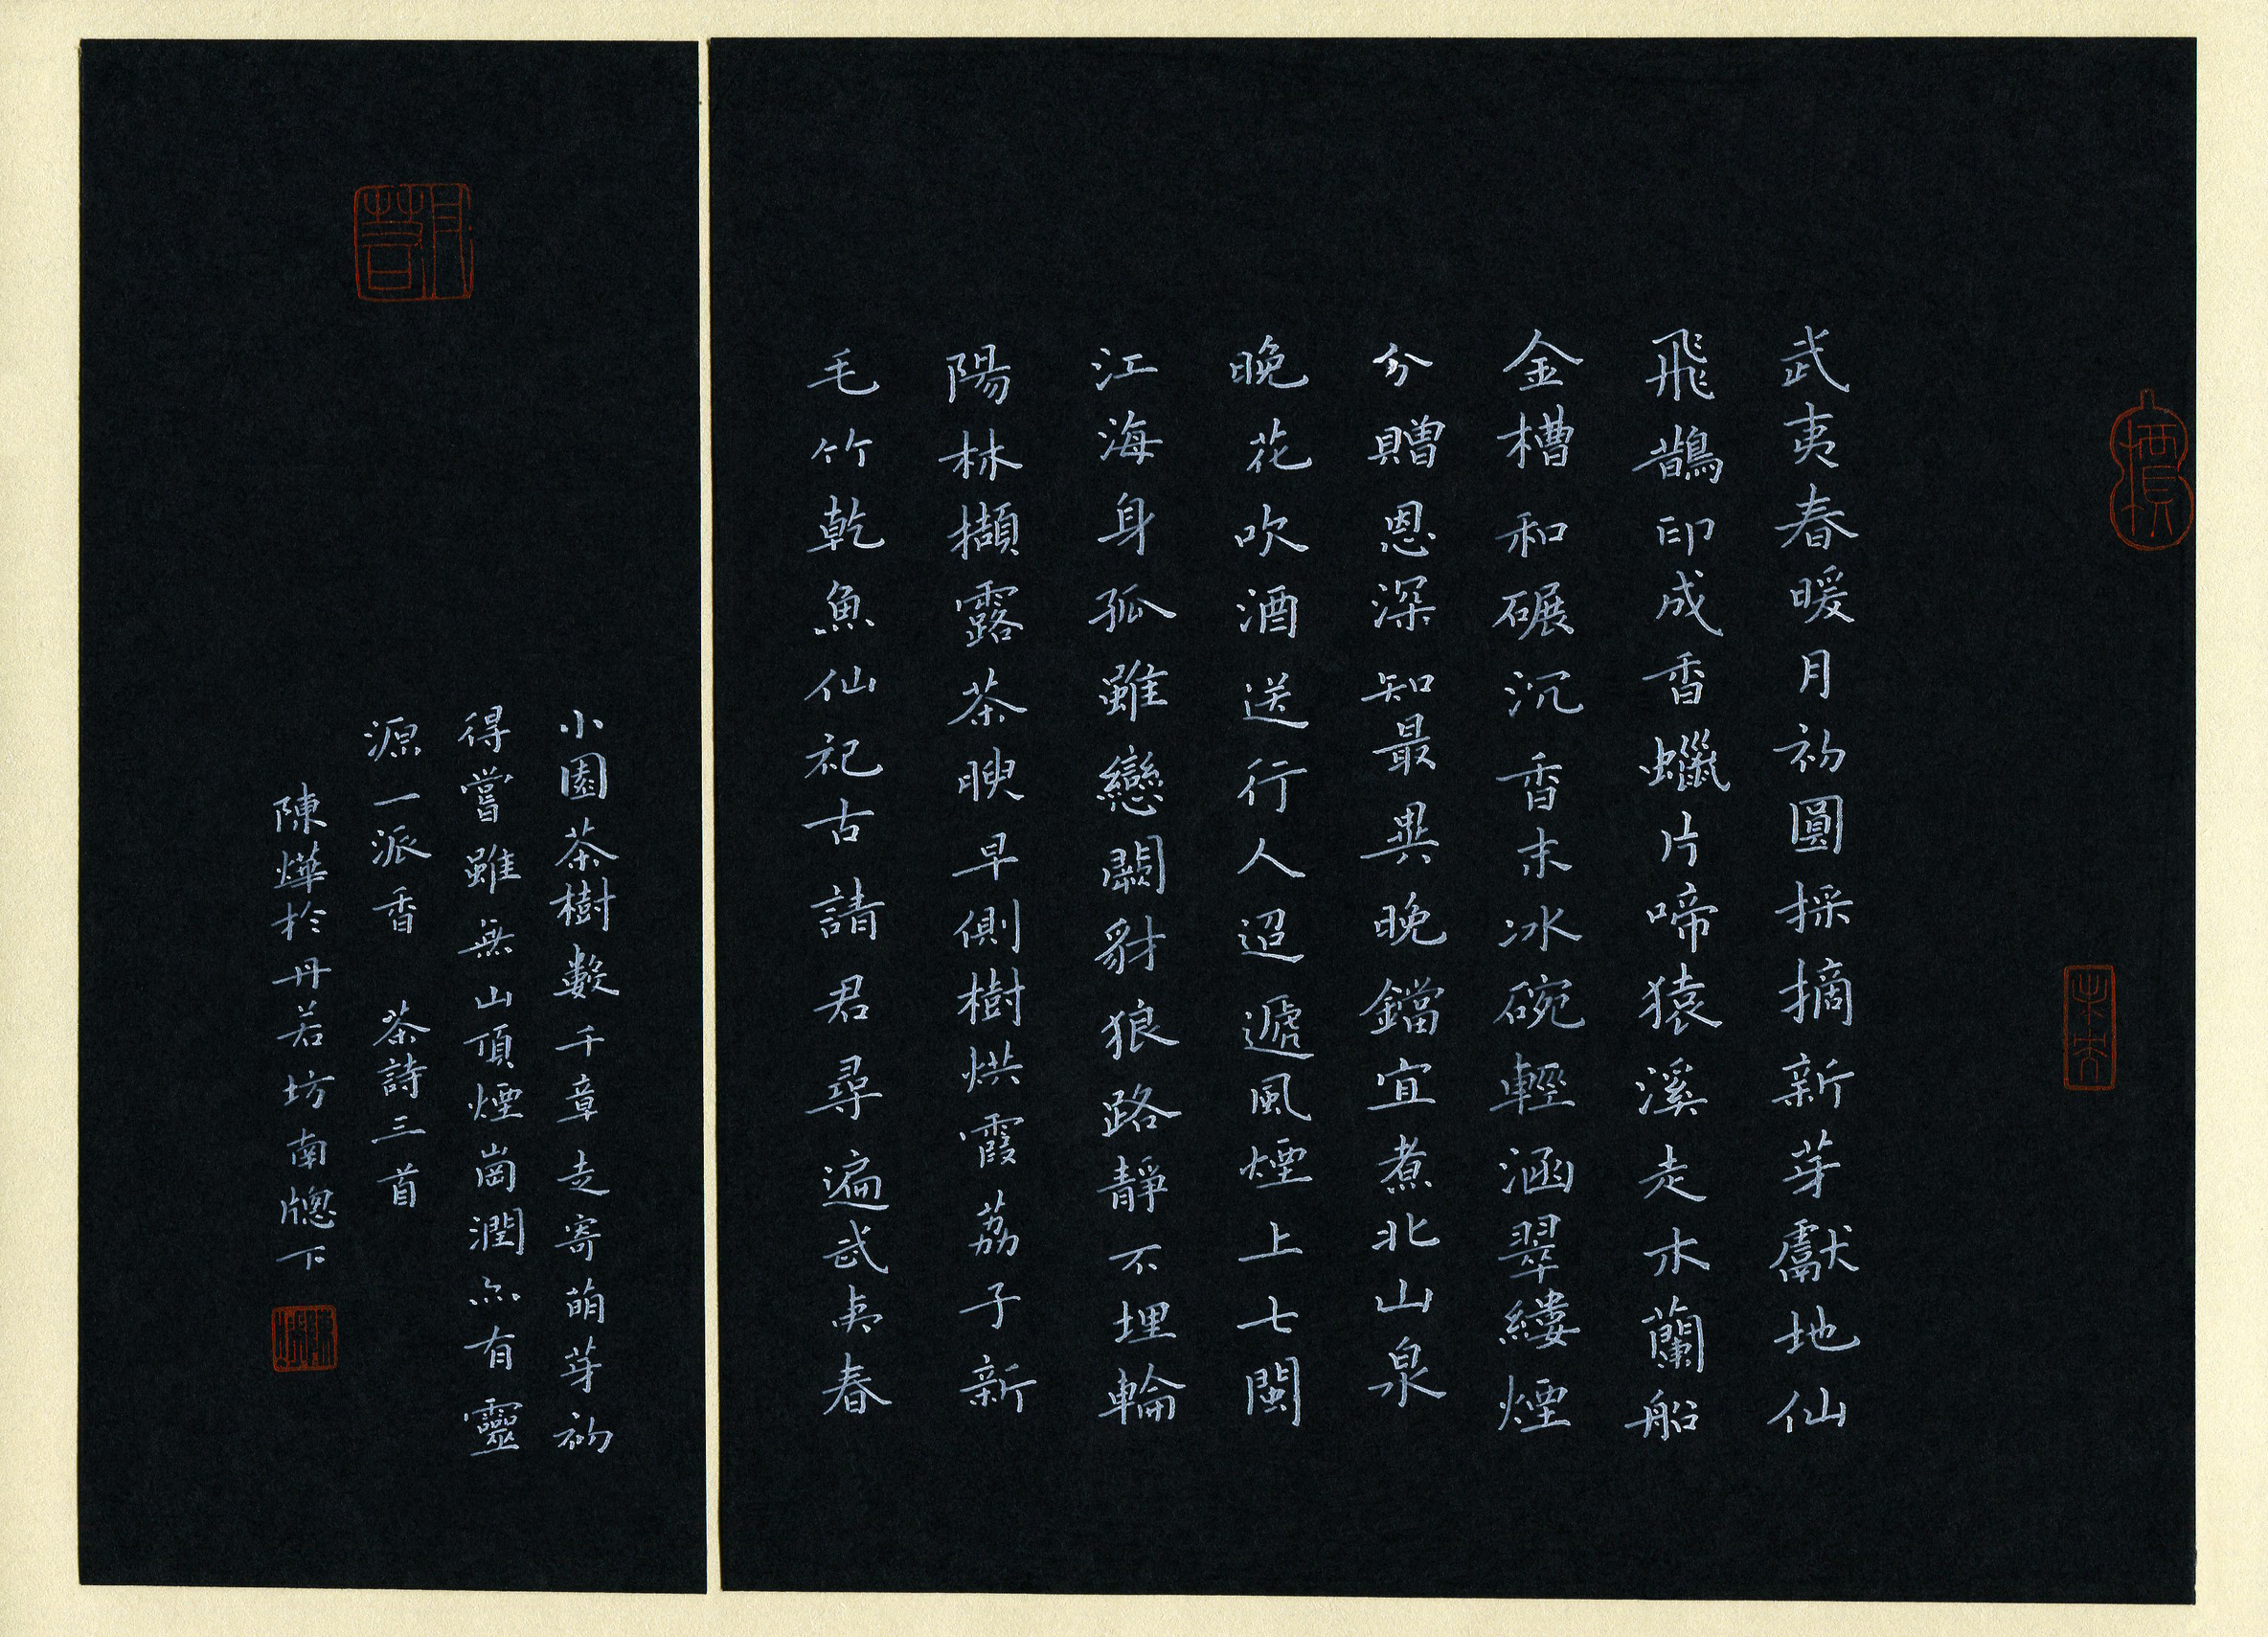 武夷春暖月初圓採摘新芽獻地仙
飛鵲印成香蠟片啼猿溪走木蘭船
金槽和碾沉香末冰碗輕涵翠縷煙
分贈恩深知最異晚鐺宜煮北山泉
晚花吹酒送行人迢遞風煙上七閩
江海身孤雖戀闕豺狼路靜不埋輪
陽林擷露茶腴早側樹烘霞荔子新
毛竹乾魚仙祀古請君尋遍武夷春
小園茶樹數千章走寄萌芽初
得嘗雖無山頂煙崗潤亦有靈
源一派香 茶詩三首
陳燁於丹若坊南牕下